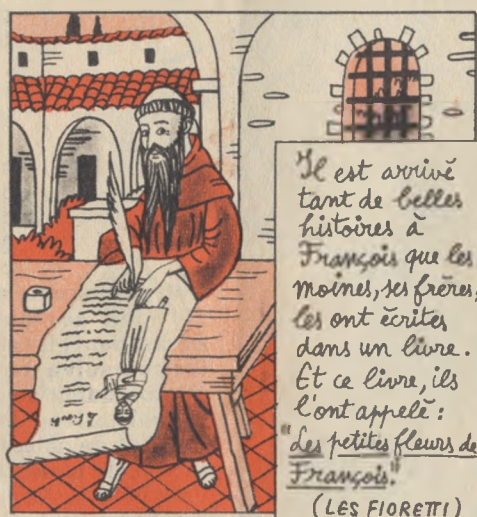 Il est arrivé
tant de belles
histoires à
François que les
moines, ses frères,
les ont écrites
dans un livre.
Et ce livre, ils
l'ont appelé :
"Les petites fleurs de
François."
(LES FIORETTI)